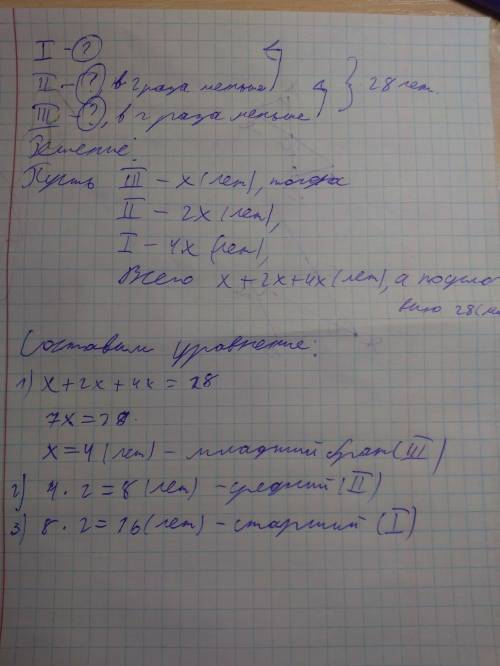 I - ?
II - ?, в 2 раза меньше } 28 лет.
III - ?, в 2 раза меньше
Решение:
Пусть III - x (лет), тогда
II - 2x (лет),
I - 4x (лет),
Всего x + 2x + 4x (лет), а по усло
вию 28 (
Составим уравнение:
1) x + 2x + 4x = 28
7x = 28.
x = 4 (лет) - младший брат (III)
2) 4 · 2 = 8 (лет) - средний (II)
3) 8 · 2 = 16 (лет) - старший (I)